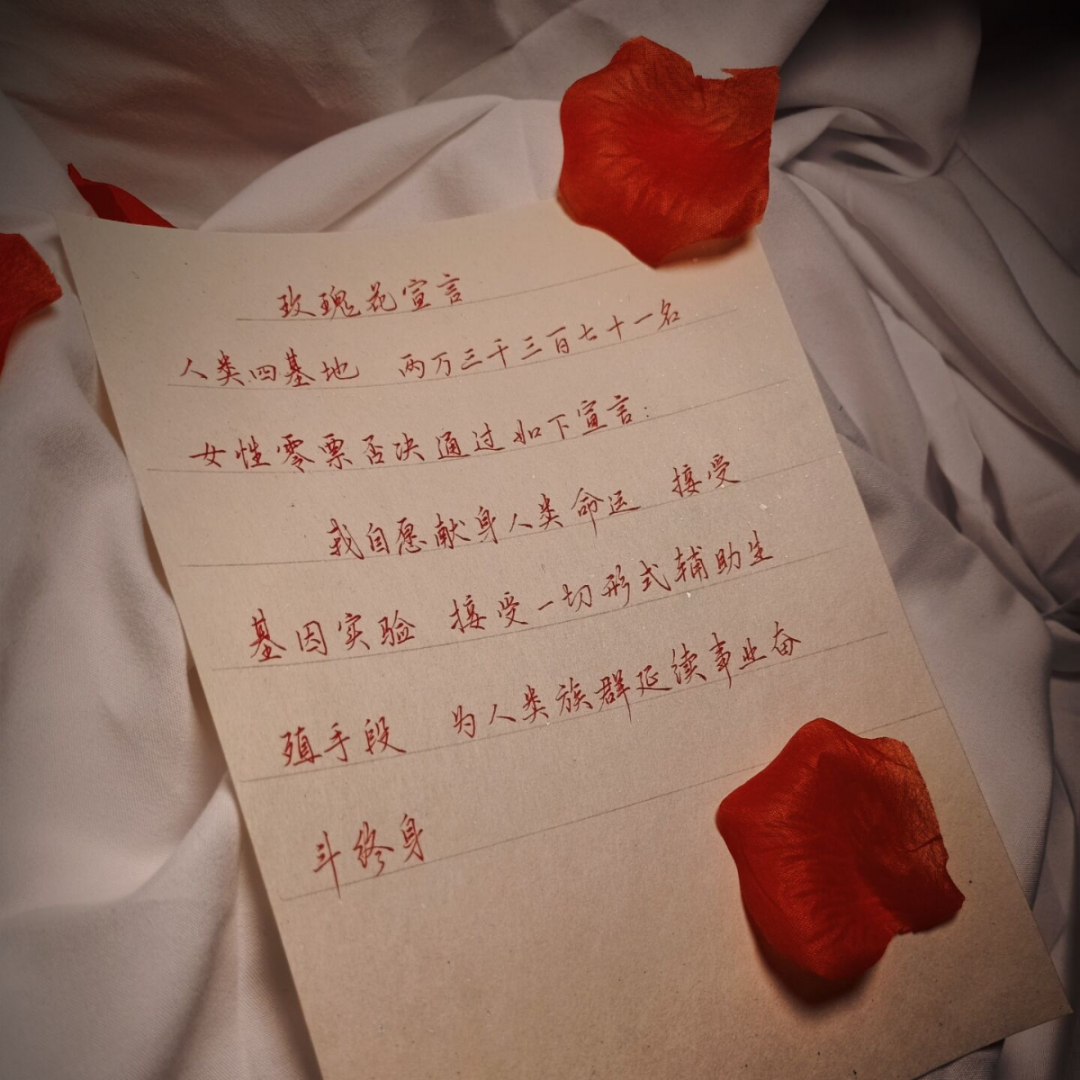 玫瑰花宣言
人类四基地 两万三千三百七十一名
女性零票否决通过如下宣言:
我自愿献身人类命运 接受
基因实验 接受一切形式辅助生
殖手段 为人类族群延续事业奋
斗终身